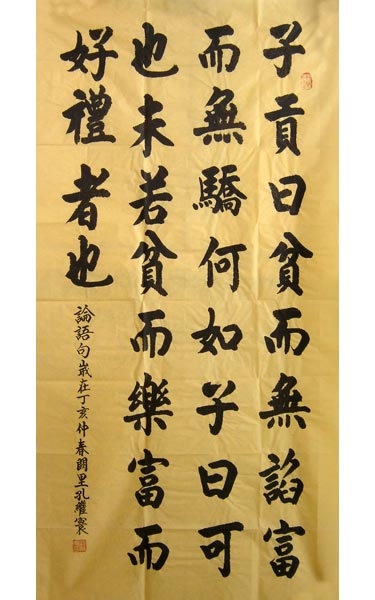 子貢曰貧而無諂富
而無驕何如子曰可
也未若貧而樂富而
好禮者也
論語句歲在丁亥仲春闕里孔